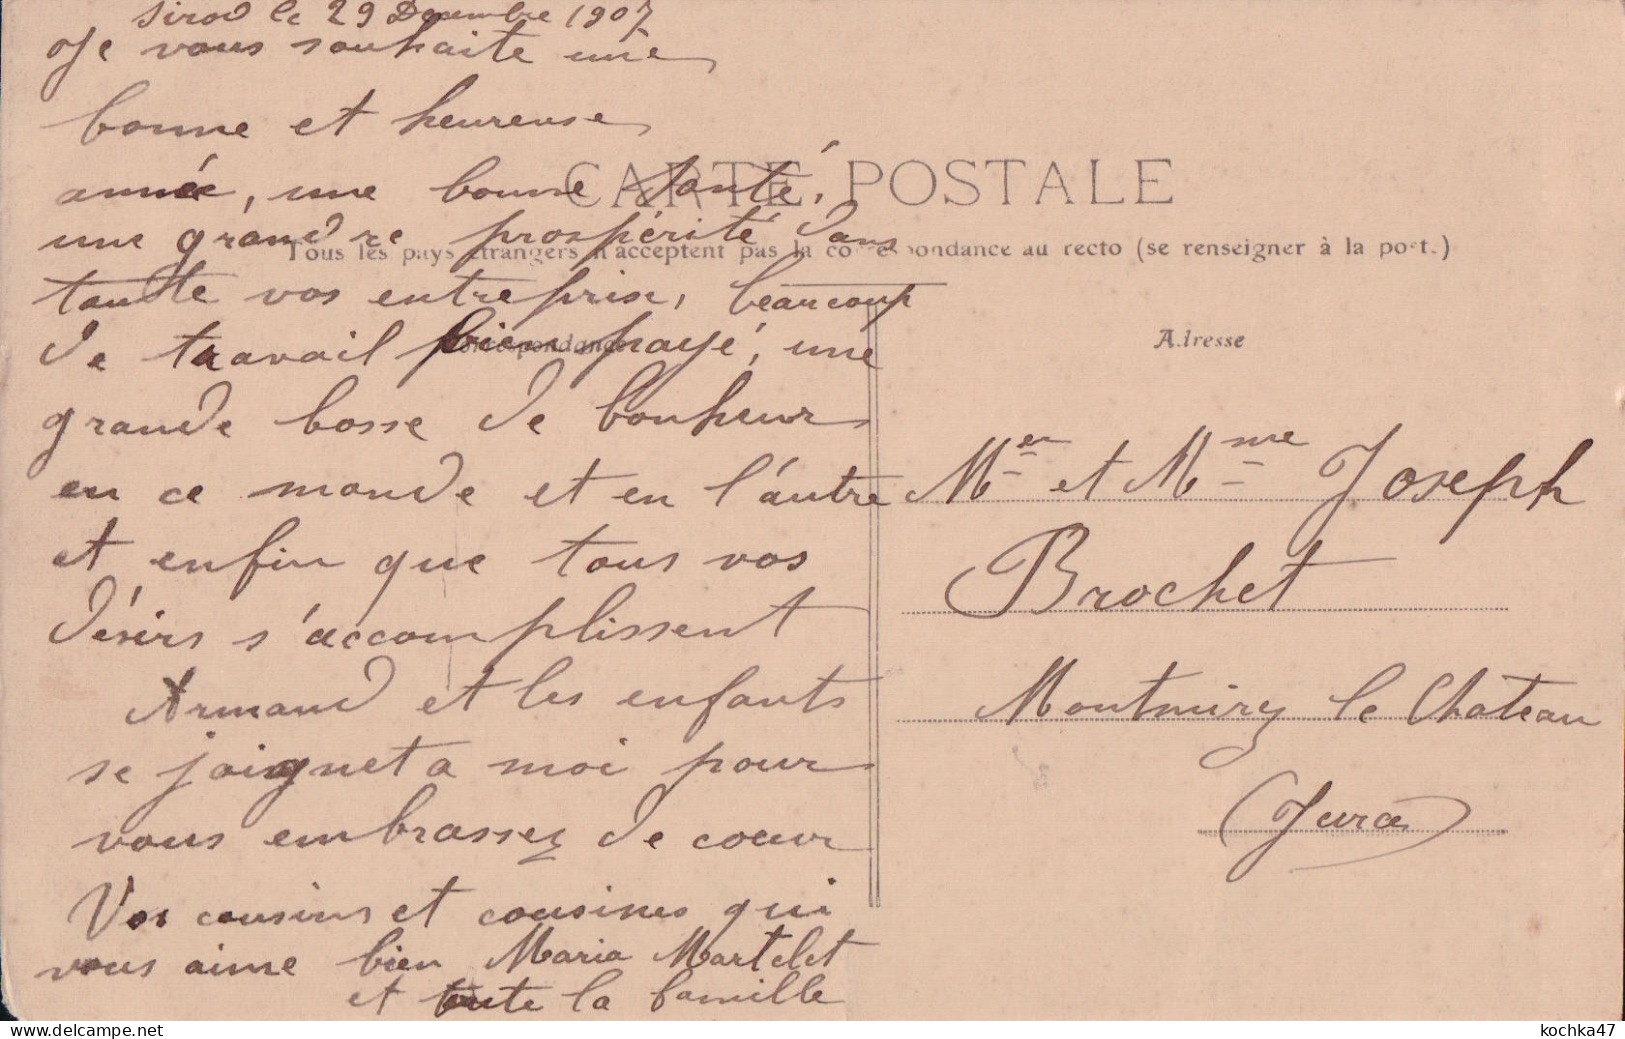 Sirod le 29 Decembre 1907
Je vous souhaite une
bonne et heureuse
CARTE POSTALE
année, une bonne santé,
une grandre prospérité dans
Tous les pays étrangers n'acceptent pas la correspondance au recto (se renseigner à la poste.)
toutte vos entreprise, beaucoup
de travail bien payé, une
Correspondance
grande bosse de bonheur
en ce monde et en l'autre
et enfin que tous vos
désirs s'accomplissent
Armand et les enfants
se joignet a moi pour
vous embrassez de coeur
Vos cousins et cousines qui
vous aime bien Maria Martelet
et toute la famille
Adresse
Mer et Mme Joseph
Brochet
Montmirey le Chateau
(Jura)
kochka47